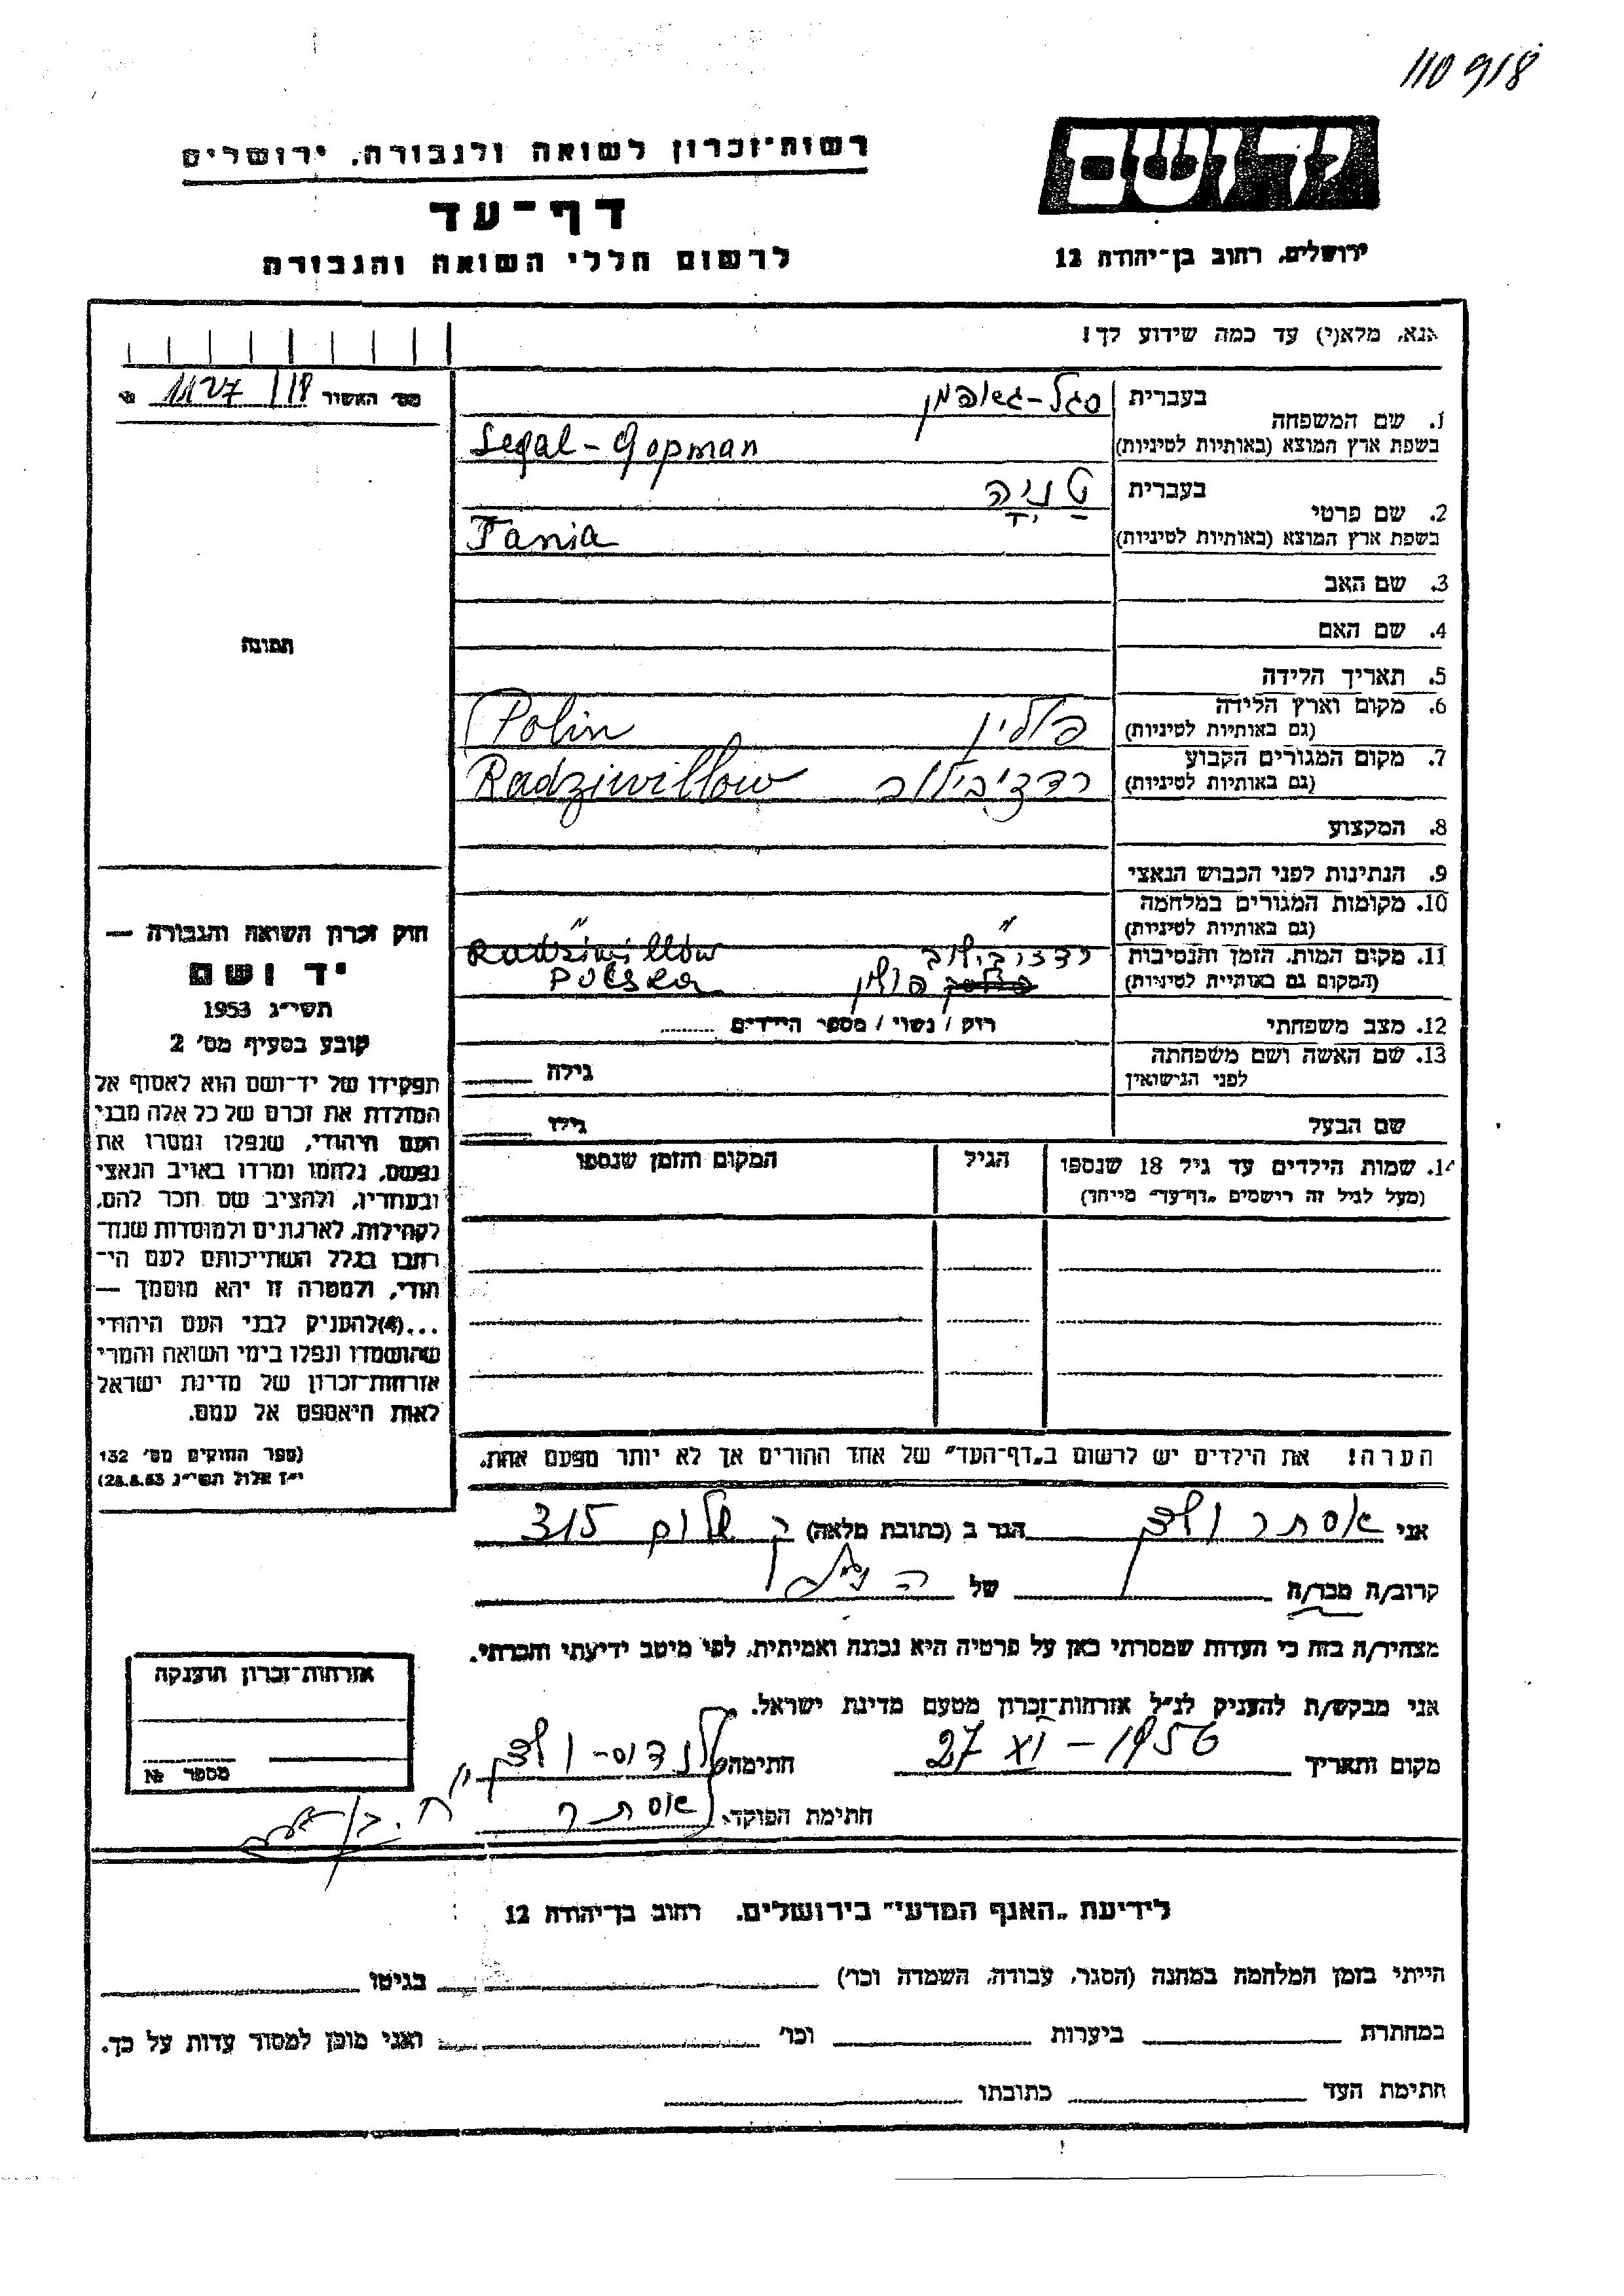 110918
יד ושם
רשות-זכרון לשואה ולגבורה, ירושלים
דף-עד
לרשום חללי השואה והגבורה
ירושלים, רחוב בן-יהודה 12
אנא, מלא(י) עד כמה שידוע לך!
מס' האשור 1127/118 №
1. שם המשפחה
בעברית סגל-גאופמן
בשפת ארץ המוצא (באותיות לטיניות) Segal-Gopman
2. שם פרטי
בעברית טניה
בשפת ארץ המוצא (באותיות לטיניות) Tania
3. שם האב
4. שם האם
תמונה
5. תאריך הלידה
6. מקום וארץ הלידה
(גם באותיות לטיניות) פולין Polin
7. מקום המגורים הקבוע
(גם באותיות לטיניות) רדציבילוב Radziwillow
8. המקצוע
9. הנתינות לפני הכבוש הנאצי
10. מקומות המגורים במלחמה
(גם באותיות לטיניות) " "
11. מקום המות, הזמן והנסיבות רדזיבילוב Radziwillow
(המקום גם באותיית לטיניות) פולין Polska
12. מצב משפחתי רוק / נשוי / מספר הילדים
13. שם האשה ושם משפחתה
לפני הנישואין גילה
שם הבעל גילו
14. שמות הילדים עד גיל 18 שנספו הגיל המקום והזמן שנספו
(מעל לגיל זה רושמים „דף-עד" מייחד)
חוק זכרון השואה והגבורה —
יד ושם
תשי"ג 1953
קובע בסעיף מס' 2
תפקידו של יד-ושם הוא לאסוף אל
המולדת את זכרם של כל אלה מבני
העם היהודי, שנפלו ומסרו את
נפשם, נלחמו ומרדו באויב הנאצי
ובעוזריו, ולהציב שם וזכר להם,
לקהילות, לארגונים ולמוסדות שנח-
רבו בגלל השתייכותם לעם הי-
הודי, ולמטרה זו יהא מוסמך —
...(4)להעניק לבני העם היהודי
שהושמדו ונפלו בימי השואה והמרי
אזרחות-זכרון של מדינת ישראל
לאות היאספם אל עמם.
(ספר החוקים מס' 132
י"ז אלול תשי"ג 28.8.53)
הערה! את הילדים יש לרשום ב„דף-העד" של אחד ההורים אך לא יותר מפעם אחת.
אני אסתר הגר ב (כתובת מלאה) ק שלום 315
קרוב/ה מכר/ה של
מצהיר/ה בזה כי העדות שמסרתי כאן על פרטיה היא נכונה ואמיתית, לפי מיטב ידיעתי והכרתי.
אני מבקש/ת להעניק לנ"ל אזרחות-זכרון מטעם מדינת ישראל.
מקום ותאריך 27 XI - 1956 חתימה
חתימת הפוקד אסתר
אזרחות-זכרון הוענקה
מספר №
לידיעת „האגף המדעי" בירושלים, רחוב בן-יהודה 12
הייתי בזמן המלחמה במחנה (הסגר, עבודה, השמדה וכו') בגיטו
במחתרת ביערות וכו' ואני מוכן למסור עדות על כך.
חתימת העד כתובתו